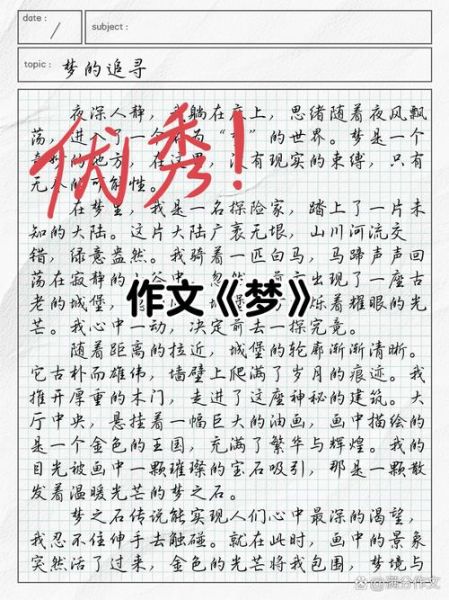 date :
subject :
topic : 梦的追寻
优秀！
夜深人静，我躺在床上，思绪随着夜风飘
荡，进入了一个 为“ ”的世界。梦是一个
的地方，在这里，没有现实的束缚，只有
无 的可能性。
在梦里，我是一名探险家，踏上了一片未
知的大陆。这片大陆广袤无垠，山川河流交
错，绿意盎然。我骑着一匹白马，马蹄声声回
荡在寂静的 谷中。忽然， 出现了一座古
老的城堡， 烁着耀眼的光
作文《梦》
芒。我心中一动，决定前去一探究竟。
随着距离的拉近，城堡的轮廓渐渐清晰。
它古朴而雄伟，墙壁上爬满了岁月的痕迹。我
推开厚重的木门，走进了这座神秘的建筑。大
厅中央，悬挂着一幅巨大的油画，画中描绘的
是一个金色的王国，充满了繁华与辉煌。我的
目光被画中一颗璀璨的宝石吸引，那是一颗散
发着温暖光芒的梦之石。
梦之石传说能实现人们心中最深的渴望，
我忍不住伸手去触碰。就在此时，画中的景象
突然活了过来，金色的光芒将我包围，梦境与
@满分作文